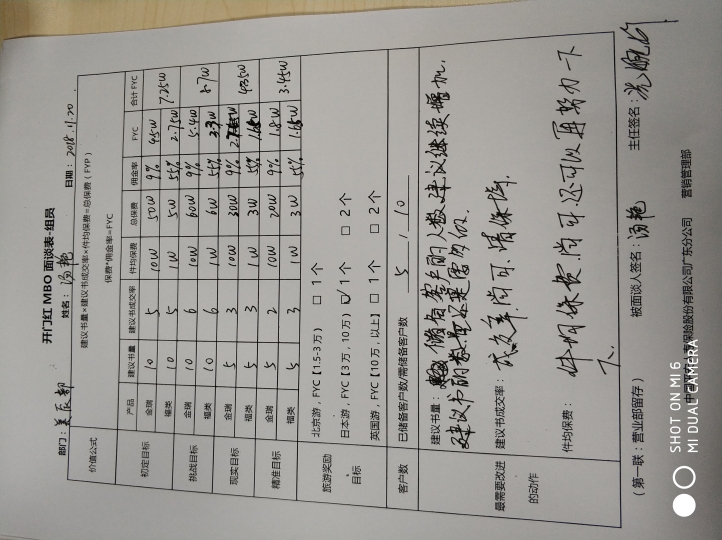 开门红 MBO 面谈表-组员
部门：美辰部 姓名：汤艳 日期：2018.11.20
价值公式 建议书量×建议书成交率×件均保费=总保费（FYP）
保费*佣金率=FYC
产品 建议书量 建议书成交率 件均保费 总保费 佣金率 FYC 合计 FYC
初定目标 金瑞 10 5 10W 50W 9% 4.5W 7.25W
福类 10 5 1W 5W 55% 2.75W
挑战目标 金瑞 10 6 10W 60W 9% 5.4W 8.7W
福类 10 6 1W 6W 55% 3.3W
现实目标 金瑞 5 3 10W 30W 9% 4.35W
福类 5 3 1W 3W 55%
精准目标 金瑞 5 2 10W 20W 9% 1.8W 3.45W
福类 5 3 1W 3W 55%
旅游奖励目标 北京游，FYC【1.5-3万） □ 1个
日本游，FYC【3万，10万） ☑ 1个 □ 2个
英国游，FYC【10万，以上】 □ 1个 □ 2个
客户数 已储备客户数/需储备客户数 5 , 10
最需要改进的动作
建议书量：储备客户的人数建议继续增加，
建议书的数量还是
建议书成交率：成交率尚可，请保持。
件均保费：件均保费尚可，还可以再努力一下
下。
（第一联：营业部留存） 被面谈人签名：汤艳 主任签名：
寿保险股份有限公司广东分公司 营销管理部
SHOT ON MI 6
MI DUAL CAMERA